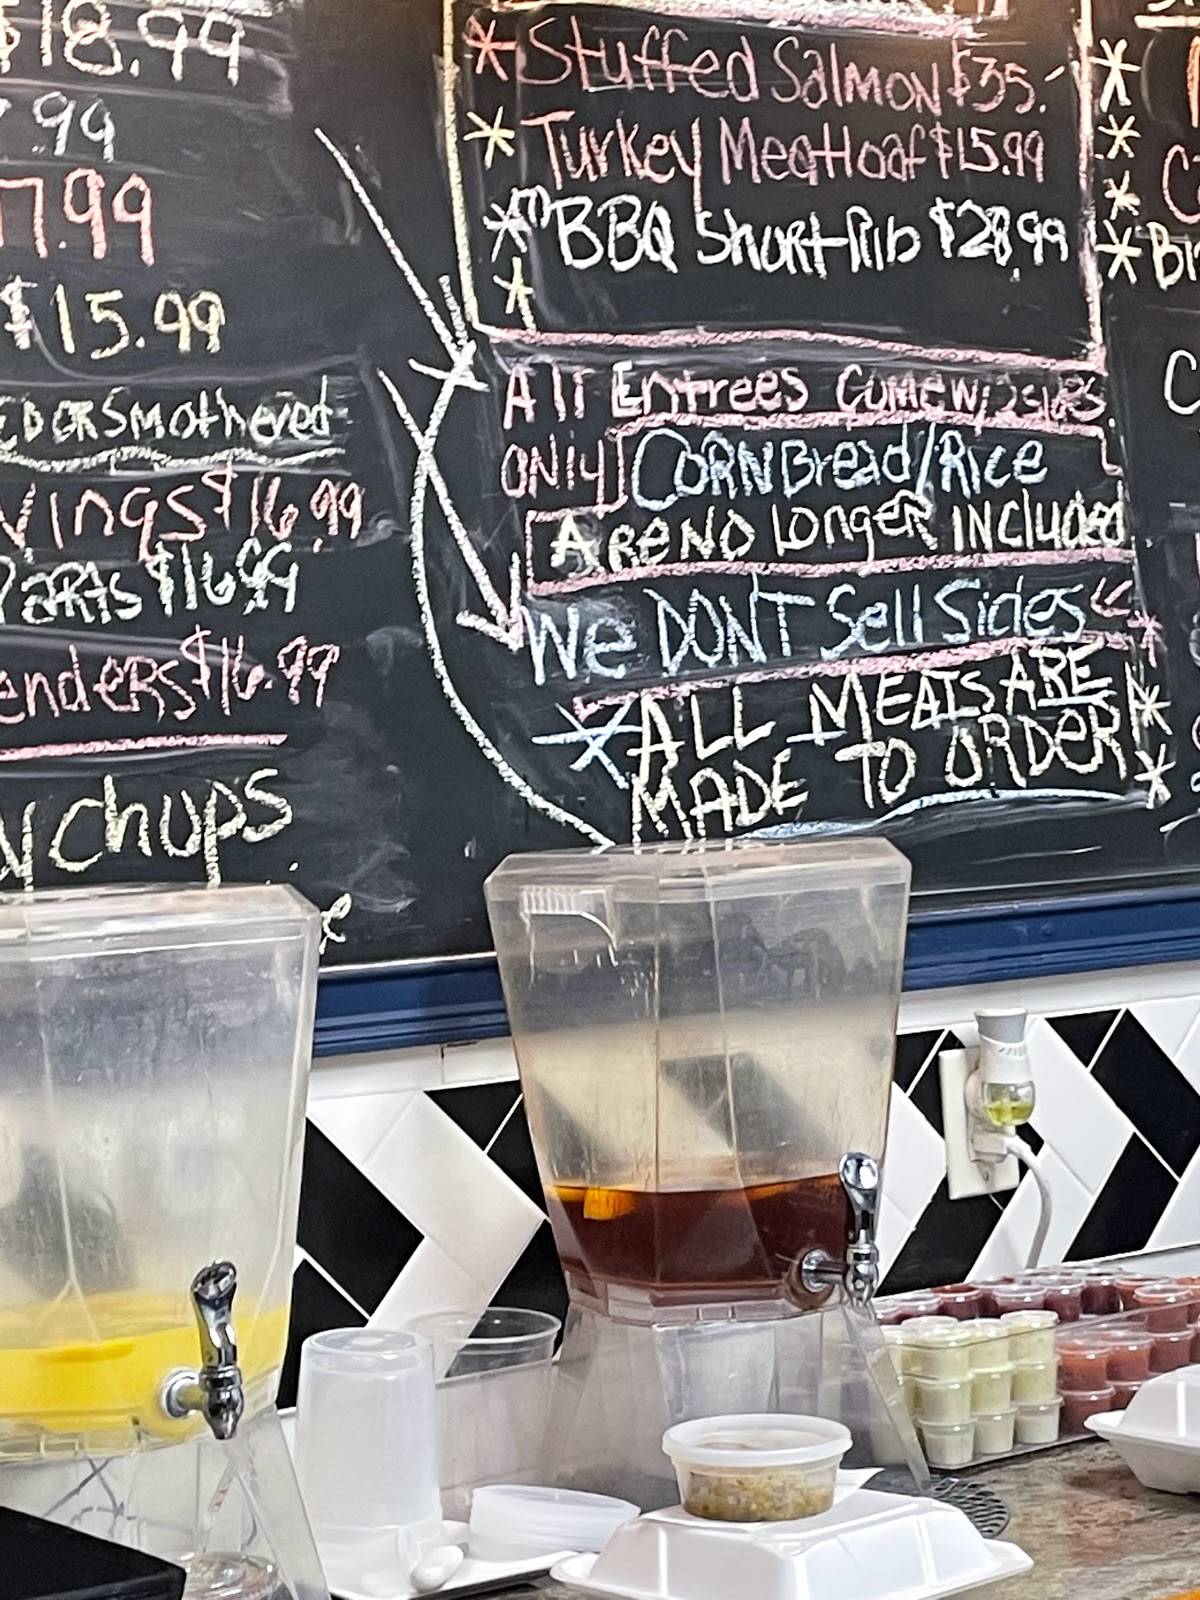 $18.99
.99
7.99
$15.99
Smothered
$16.99
Parts $16.99
$16.99
chups.
* Stuffed Salmon $35.-
* Turkey Meatloaf $15.99
* BBQ Short Rib $28.99
*
All Entrees Come w/ 2 sides
ONly CORNBread/Rice
Are No Longer INcluded
We DON'T Sell Sides
* ALL MEATS ARE *
MADE TO ORDER *
*
*
*
* Bi